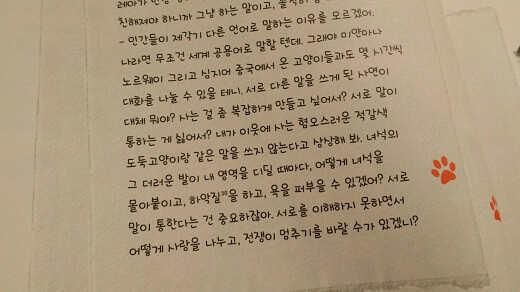 친해져야 하니까 그냥 하는 말이고, 솔직히
- 인간들이 제각기 다른 언어로 말하는 이유를 모르겠어.
나라면 무조건 세계 공용어로 말할 텐데. 그래야 미얀마나
노르웨이 그리고 심지어 중국에서 온 고양이들과도 몇 시간씩
대화를 나눌 수 있을 테니. 서로 다른 말을 쓰게 된 사연이
대체 뭐야? 사는 걸 좀 복잡하게 만들고 싶어서? 서로 말이
통하는 게 싫어서? 내가 이웃에 사는 혐오스러운 적갈색
도둑고양이랑 같은 말을 쓰지 않는다고 상상해 봐. 녀석의
그 더러운 발이 내 영역을 디딜 때마다, 어떻게 녀석을
몰아붙이고, 하악질³⁰을 하고, 욕을 퍼부을 수 있겠어? 서로
말이 통한다는 건 중요하잖아. 서로를 이해하지 못하면서
어떻게 사랑을 나누고, 전쟁이 멈추기를 바랄 수가 있겠니?